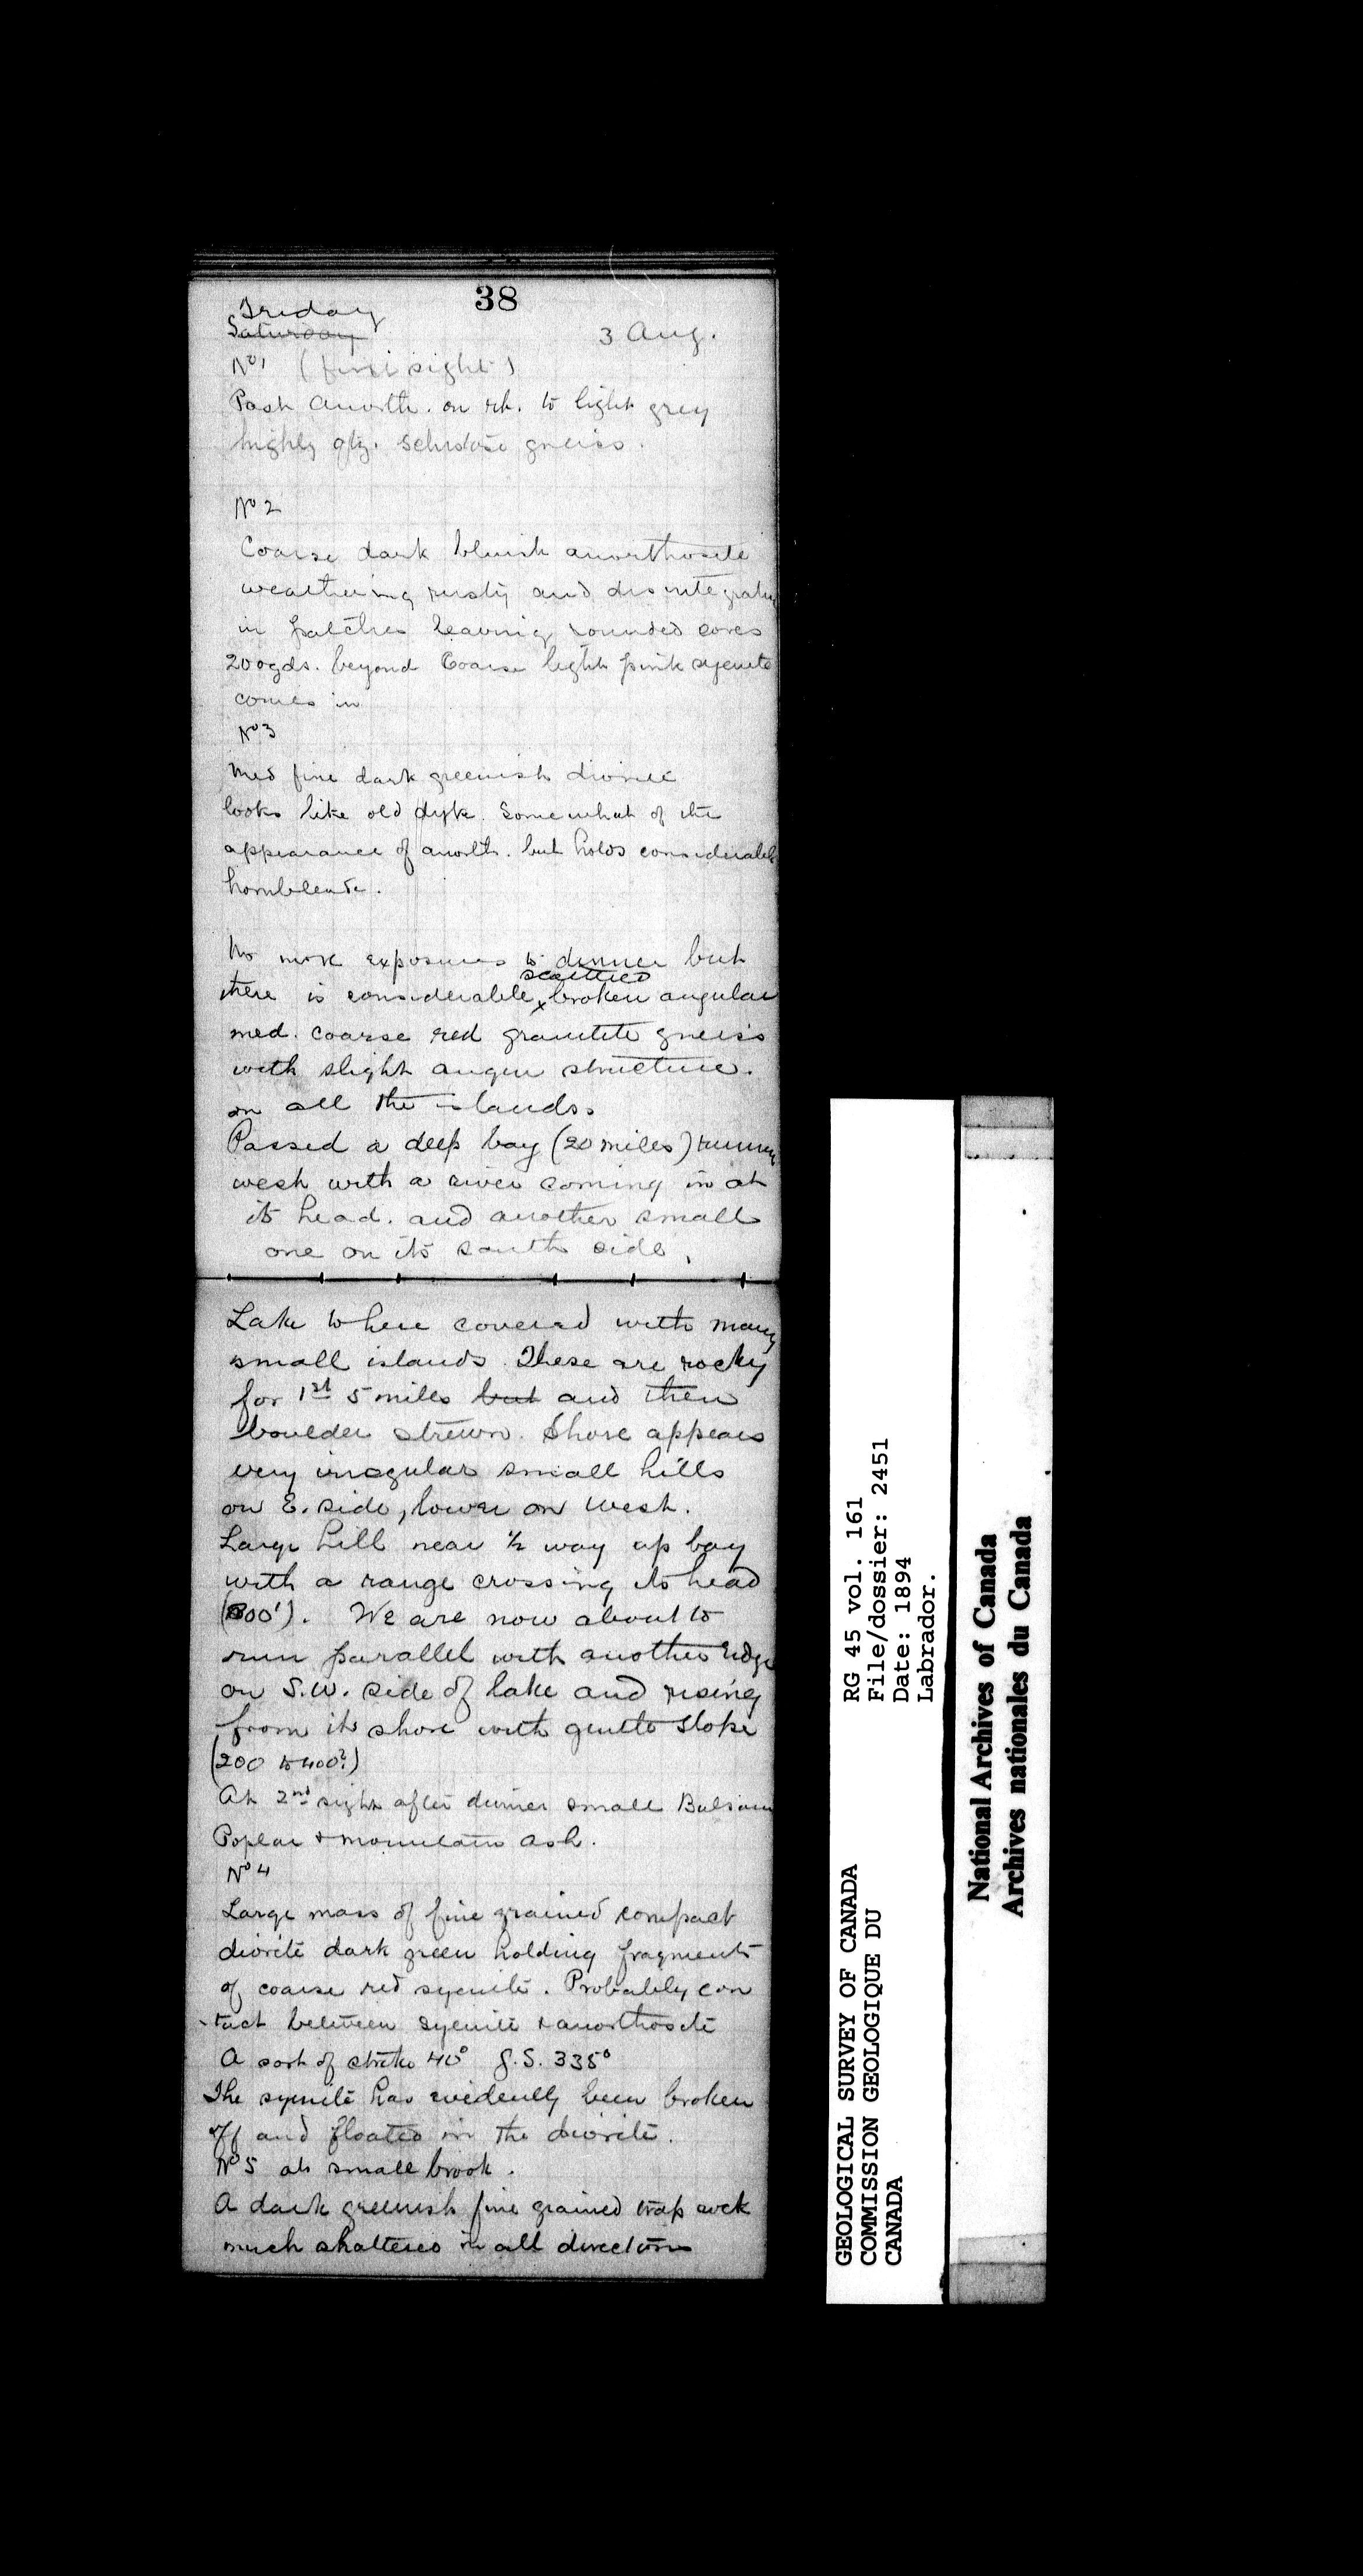 38
Friday
Saturday
3 Aug.
No 1 (first sight)
Past anorth. on rt. to light grey
highly qtz. schistose gneiss.
No 2
Coarse dark bluish anorthosite
weathering rusty and disintegrating
in patches leaving rounded cores
200 yds. beyond Coarse light pink syenite
comes in
No 3
Med fine dark greenish diorite
looks like old dyke. Somewhat of the
appearance of anorth. but holds considerable
hornblende.
No more exposures to dinner but
scattered
there is considerable x broken angular
med. coarse red granitite gneiss
with slight augen structure.
on all the islands.
Passed a deep bay (20 miles) running
west with a river coming in at
its head. and another small
one on its south side.
Lake to here covered with many
small islands. These are rocky
for 1st 5 miles but and then
boulder strewn. Shore appears
very irregular small hills
on E. side, lower on West.
Large hill near ½ way up bay
with a range crossing its head
We are now about to
run parallel with another ridge
on S.W. side of lake and rising
from its shore with gentle slope
(200 to 400?)
At 2nd sight after dinner small Balsam
Poplar & mountain ash.
No 4
Large mass of fine grained compact
diorite dark green holding fragments
of coarse red syenite. Probably con
-tact between syenite & anorthosite
A sort of strike 40° S. 335°
The syenite has evidently been broken
off and floated in the diorite.
No 5 at small brook.
A dark greenish fine grained trap rock
much shattered in all directions
GEOLOGICAL SURVEY OF CANADA
COMMISSION GEOLOGIQUE DU
CANADA
RG 45 vol. 161
File/dossier: 2451
Date: 1894
Labrador.
National Archives of Canada
Archives nationales du Canada